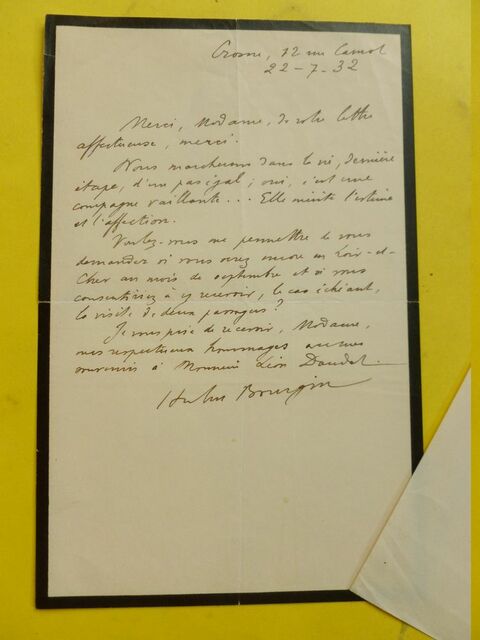 Crosne, 12 rue Carnot
22-7-32
Merci, Madame, de votre lettre
affectueuse, merci.
Nous marcherons dans la vie, dernière
étape, d'un pas égal ; oui, c'est une
compagne vaillante... Elle mérite l'estime
et l'affection.
Voulez-vous me permettre de vous
demander si vous serez encore en Loir-et-
Cher au mois de septembre et si vous
consentiriez à y recevoir, le cas échéant,
la visite de deux passagers ?
Je vous prie de recevoir, Madame,
mes respectueux hommages avec mes
souvenirs à Monsieur Léon Daudet.
Hubert Bourgin